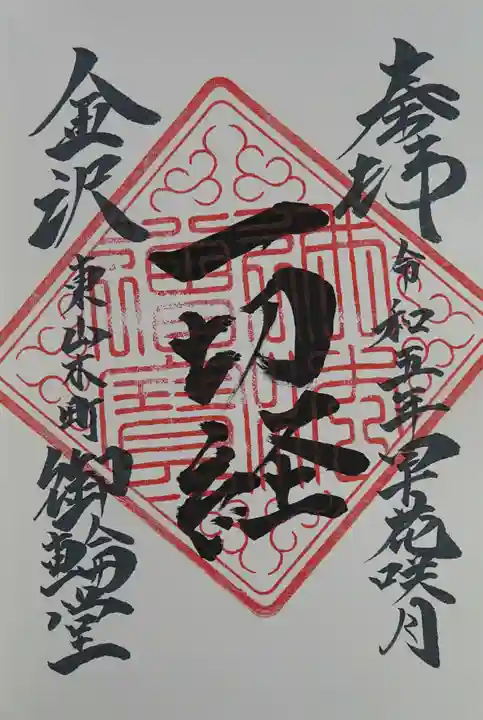 奉拝
令和五年早花咲月
一切経
金沢
東山木町
御輪堂